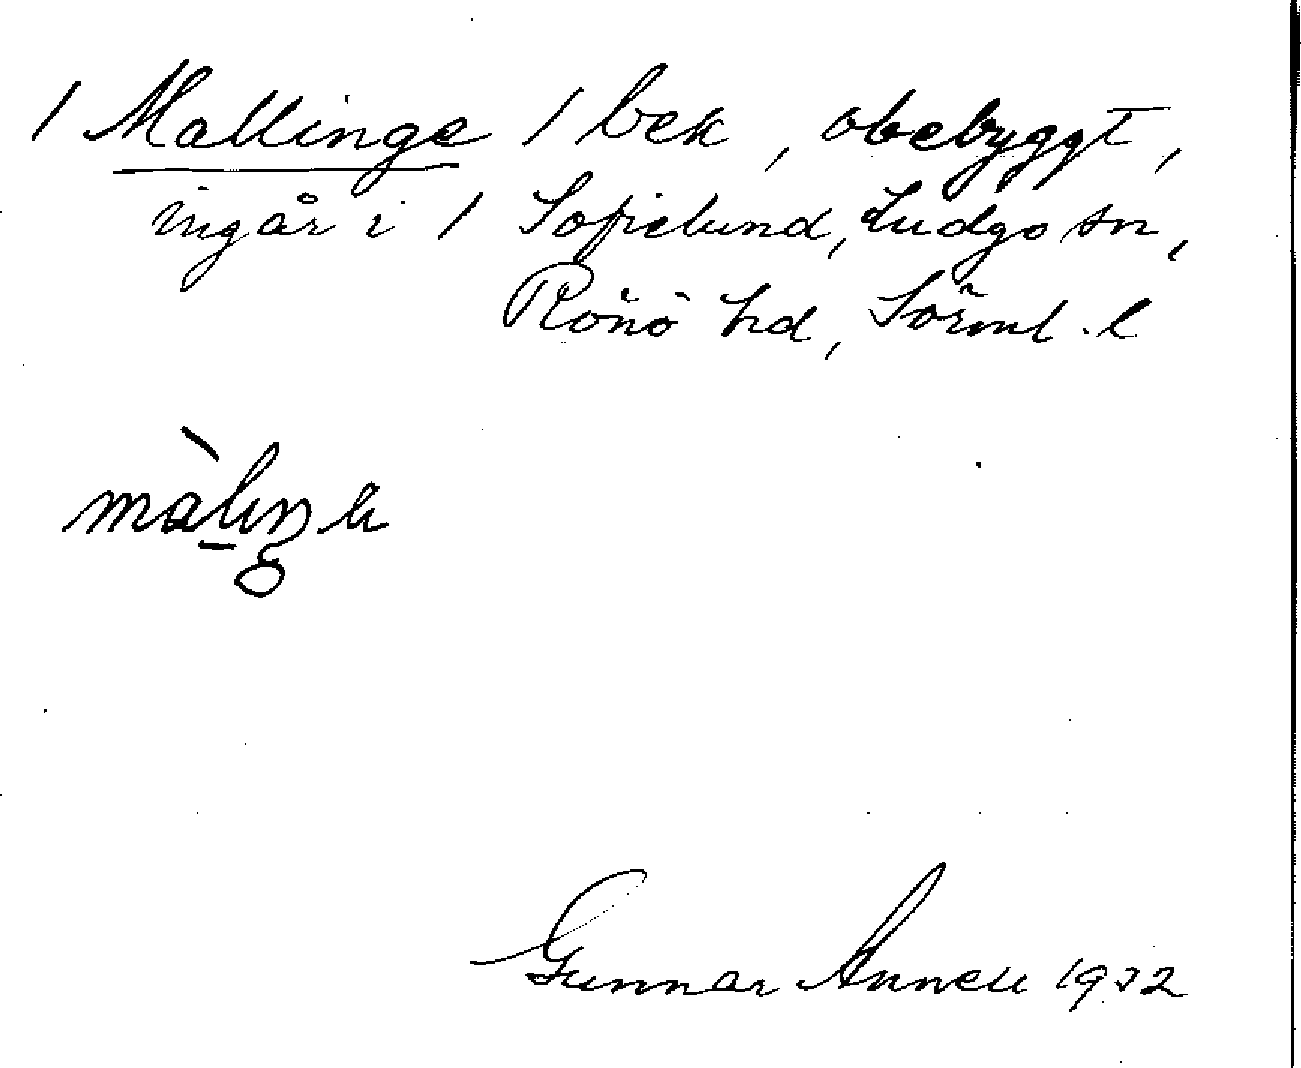 / Mallinge / bek, obebyggt,
ingår i / Sofielund, Ludgo sn,
Rönö hd, Sörml. l
Gunnar Annell 1932